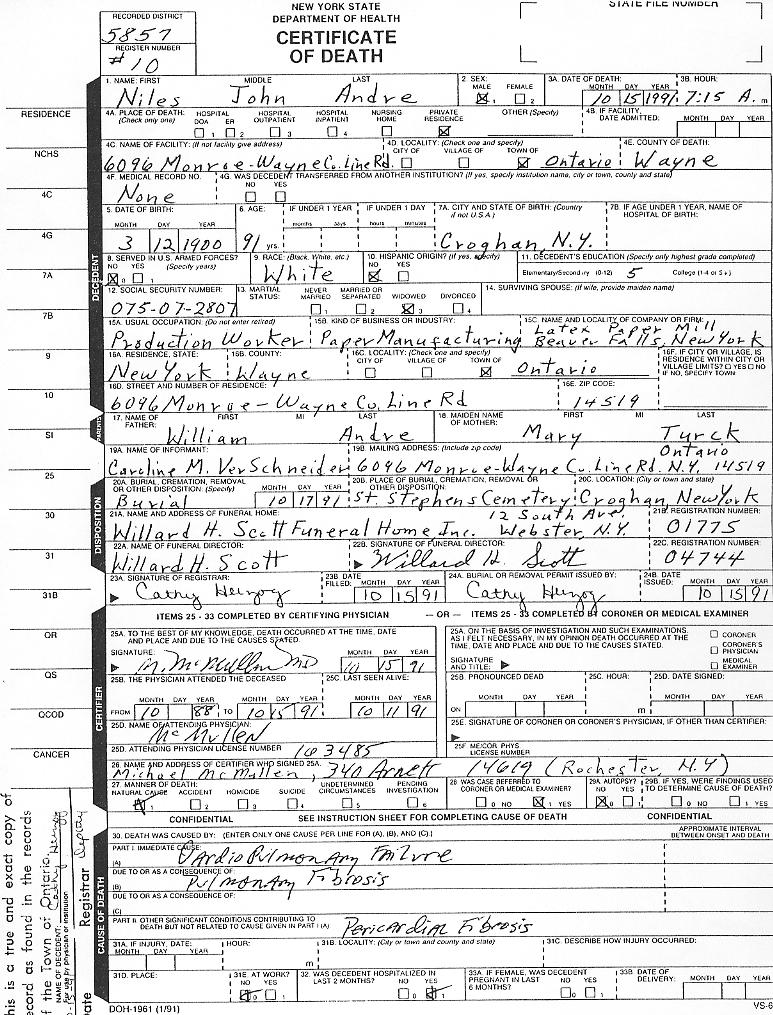 RECORDED DISTRICT
5857
REGISTER NUMBER
#10
NEW YORK STATE
DEPARTMENT OF HEALTH
CERTIFICATE
OF DEATH
STATE FILE NUMBER
RESIDENCE
NCHS
4C
4G
7A
7B
9
10
SI
25
30
31
31B
OR
QS
QCOD
CANCER
DECEDENT
1. NAME: FIRST MIDDLE LAST
Niles John Andre
2 SEX: MALE FEMALE
☒ 1 ☐ 2
3A. DATE OF DEATH: MONTH DAY YEAR
10 15 1991
3B. HOUR:
7:15 A. m
4A. PLACE OF DEATH: (Check only one)
HOSPITAL DOA ER HOSPITAL OUTPATIENT HOSPITAL INPATIENT NURSING HOME PRIVATE RESIDENCE OTHER (Specify)
4B. IF FACILITY, DATE ADMITTED: MONTH DAY YEAR
4C. NAME OF FACILITY: (If not facility give address)
6096 Monroe-Wayne Co. Line Rd.
4D. LOCALITY: (Check one and specify) CITY OF VILLAGE OF TOWN OF
☒ Ontario
4E. COUNTY OF DEATH:
Wayne
4F. MEDICAL RECORD NO.
None
4G. WAS DECEDENT TRANSFERRED FROM ANOTHER INSTITUTION? (If yes, specify institution name, city or town, county and state)
NO YES
5. DATE OF BIRTH: MONTH DAY YEAR
3 12 1900
6. AGE: IF UNDER 1 YEAR months days IF UNDER 1 DAY hours minutes
91 yrs.
7A. CITY AND STATE OF BIRTH: (Country if not U.S.A.)
Croghan, N.Y.
7B. IF AGE UNDER 1 YEAR, NAME OF HOSPITAL OF BIRTH:
8. SERVED IN U.S. ARMED FORCES? NO YES (Specify years)
☒ 0 ☐ 1
9. RACE: (Black, White, etc.)
White
10. HISPANIC ORIGIN? (If yes, specify) NO YES
11. DECEDENT'S EDUCATION (Specify only highest grade completed)
Elementary/Secondary (0-12) 5 College (1-4 or 5+)
12. SOCIAL SECURITY NUMBER:
075-07-2807
13. MARITAL STATUS: NEVER MARRIED MARRIED OR SEPARATED WIDOWED DIVORCED
☐ 1 ☐ 2 ☒ 3 ☐ 4
14. SURVIVING SPOUSE: (If wife, provide maiden name)
15A. USUAL OCCUPATION: (Do not enter retired)
Production Worker
15B. KIND OF BUSINESS OR INDUSTRY:
Paper Manufacturing
15C. NAME AND LOCALITY OF COMPANY OR FIRM:
Latex Paper Mill
Beaver Falls, New York
16A. RESIDENCE, STATE:
New York
16B. COUNTY:
Wayne
16C. LOCALITY: (Check one and specify) CITY OF VILLAGE OF TOWN OF
☒ Ontario
16F. IF CITY OR VILLAGE, IS RESIDENCE WITHIN CITY OR VILLAGE LIMITS? ☐ YES ☐ NO
IF NO, SPECIFY TOWN
16D. STREET AND NUMBER OF RESIDENCE:
6096 Monroe - Wayne Co. Line Rd
16E. ZIP CODE:
14519
PARENTS
17. NAME OF FATHER: FIRST MI LAST
William Andre
18. MAIDEN NAME OF MOTHER: FIRST MI LAST
Mary Turck
19A. NAME OF INFORMANT:
Caroline M. VerSchneider
19B. MAILING ADDRESS: (Include zip code)
Ontario
6096 Monroe-Wayne Co. Line Rd. N.Y. 14519
DISPOSITION
20A. BURIAL, CREMATION, REMOVAL OR OTHER DISPOSITION. (Specify) MONTH DAY YEAR
Burial 10 17 91
20B. PLACE OF BURIAL, CREMATION, REMOVAL OR OTHER DISPOSITION:
St. Stephens Cemetery
20C. LOCATION: (City or town and state)
Croghan, New York
21A. NAME AND ADDRESS OF FUNERAL HOME:
12 South Ave.
Willard H. Scott Funeral Home Inc. Webster, N.Y.
21B. REGISTRATION NUMBER:
01775
22A. NAME OF FUNERAL DIRECTOR:
Willard H. Scott
22B. SIGNATURE OF FUNERAL DIRECTOR:
Willard H. Scott
22C. REGISTRATION NUMBER:
04744
23A. SIGNATURE OF REGISTRAR:
Cathy Herzog
23B DATE FILED: MONTH DAY YEAR
10 15 91
24A. BURIAL OR REMOVAL PERMIT ISSUED BY:
Cathy Herzog
24B. DATE ISSUED: MONTH DAY YEAR
10 15 91
ITEMS 25 - 33 COMPLETED BY CERTIFYING PHYSICIAN — OR — ITEMS 25 - 33 COMPLETED BY CORONER OR MEDICAL EXAMINER
CERTIFIER
25A. TO THE BEST OF MY KNOWLEDGE, DEATH OCCURRED AT THE TIME, DATE AND PLACE AND DUE TO THE CAUSES STATED.
SIGNATURE: MONTH DAY YEAR
M. McMullen MD 10 15 91
25A. ON THE BASIS OF INVESTIGATION AND SUCH EXAMINATIONS, AS I FELT NECESSARY, IN MY OPINION DEATH OCCURRED AT THE TIME, DATE AND PLACE AND DUE TO THE CAUSES STATED.
SIGNATURE AND TITLE:
☐ CORONER
☐ CORONER'S PHYSICIAN
☐ MEDICAL EXAMINER
25B. THE PHYSICIAN ATTENDED THE DECEASED
FROM MONTH DAY YEAR TO MONTH DAY YEAR
10 88 TO 10 15 91
25C. LAST SEEN ALIVE: MONTH DAY YEAR
10 11 91
25B. PRONOUNCED DEAD MONTH DAY YEAR
ON
25C. HOUR:
m
25D. DATE SIGNED: MONTH DAY YEAR
25D. NAME OF ATTENDING PHYSICIAN:
McMullen
25E. SIGNATURE OF CORONER OR CORONER'S PHYSICIAN, IF OTHER THAN CERTIFIER:
25D. ATTENDING PHYSICIAN LICENSE NUMBER
163485
25F. ME/COR PHYS LICENSE NUMBER
26. NAME AND ADDRESS OF CERTIFIER WHO SIGNED 25A.
Michael McMullen, 340 Arnett 14619 (Rochester, N.Y)
27. MANNER OF DEATH: NATURAL CAUSE ACCIDENT HOMICIDE SUICIDE UNDETERMINED CIRCUMSTANCES PENDING INVESTIGATION
☒ 1 ☐ 2 ☐ 3 ☐ 4 ☐ 5 ☐ 6
28 WAS CASE REFERRED TO CORONER OR MEDICAL EXAMINER?
☐ 0 NO ☒ 1 YES
29A. AUTOPSY? NO YES
☒ 0 ☐ 1
29B. IF YES, WERE FINDINGS USED TO DETERMINE CAUSE OF DEATH?
☐ 0 NO ☐ 1 YES
CONFIDENTIAL SEE INSTRUCTION SHEET FOR COMPLETING CAUSE OF DEATH CONFIDENTIAL
CAUSE OF DEATH
30. DEATH WAS CAUSED BY: (ENTER ONLY ONE CAUSE PER LINE FOR (A), (B), AND (C).)
APPROXIMATE INTERVAL BETWEEN ONSET AND DEATH
PART I. IMMEDIATE CAUSE:
(A) CardioPulmonary Failure
DUE TO OR AS A CONSEQUENCE OF:
(B) Pulmonary Fibrosis
DUE TO OR AS A CONSEQUENCE OF:
(C)
PART II. OTHER SIGNIFICANT CONDITIONS CONTRIBUTING TO DEATH BUT NOT RELATED TO CAUSE GIVEN IN PART I (A)
Pericardial Fibrosis
31A. IF INJURY, DATE: MONTH DAY YEAR HOUR:
m
31B. LOCALITY: (City or town and county and state)
31C. DESCRIBE HOW INJURY OCCURRED:
31D. PLACE:
31E. AT WORK? NO YES
☒ 0 ☐ 1
32. WAS DECEDENT HOSPITALIZED IN LAST 2 MONTHS? NO YES
☐ 0 ☒ 1
33A. IF FEMALE, WAS DECEDENT PREGNANT IN LAST 6 MONTHS? NO YES
☐ 0 ☐ 1
33B. DATE OF DELIVERY: MONTH DAY YEAR
DOH-1961 (1/91)
VS-6
his is a true and exact copy of
ecord as found in the records
f the Town of Ontario.
NAME OF DECEDENT:
For use by physician or institution
Cathy Herzog
Registrar Deputy
ate